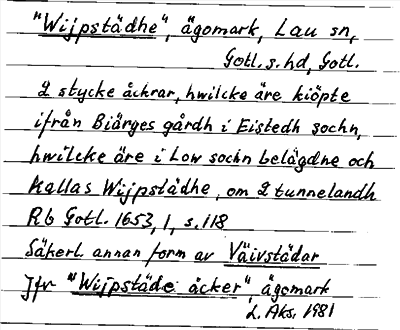 "Wijpstädhe", ägomark, Lau sn,
Gotl. s. hd, Gotl.
2 stycke åckrar, hwilcke äre kiöpte
ifrån Biärges gårdh i Eistedh sochn,
hwilcke äre i Low sochn belägdne och
kallas Wijpstädhe, om 2 tunnelandh
Rb Gotl. 1653, 1, s. 118
Säkerl. annan form av Väivstädar
Jfr "Wijpstäde åcker", ägomark
L. Aks. 1981